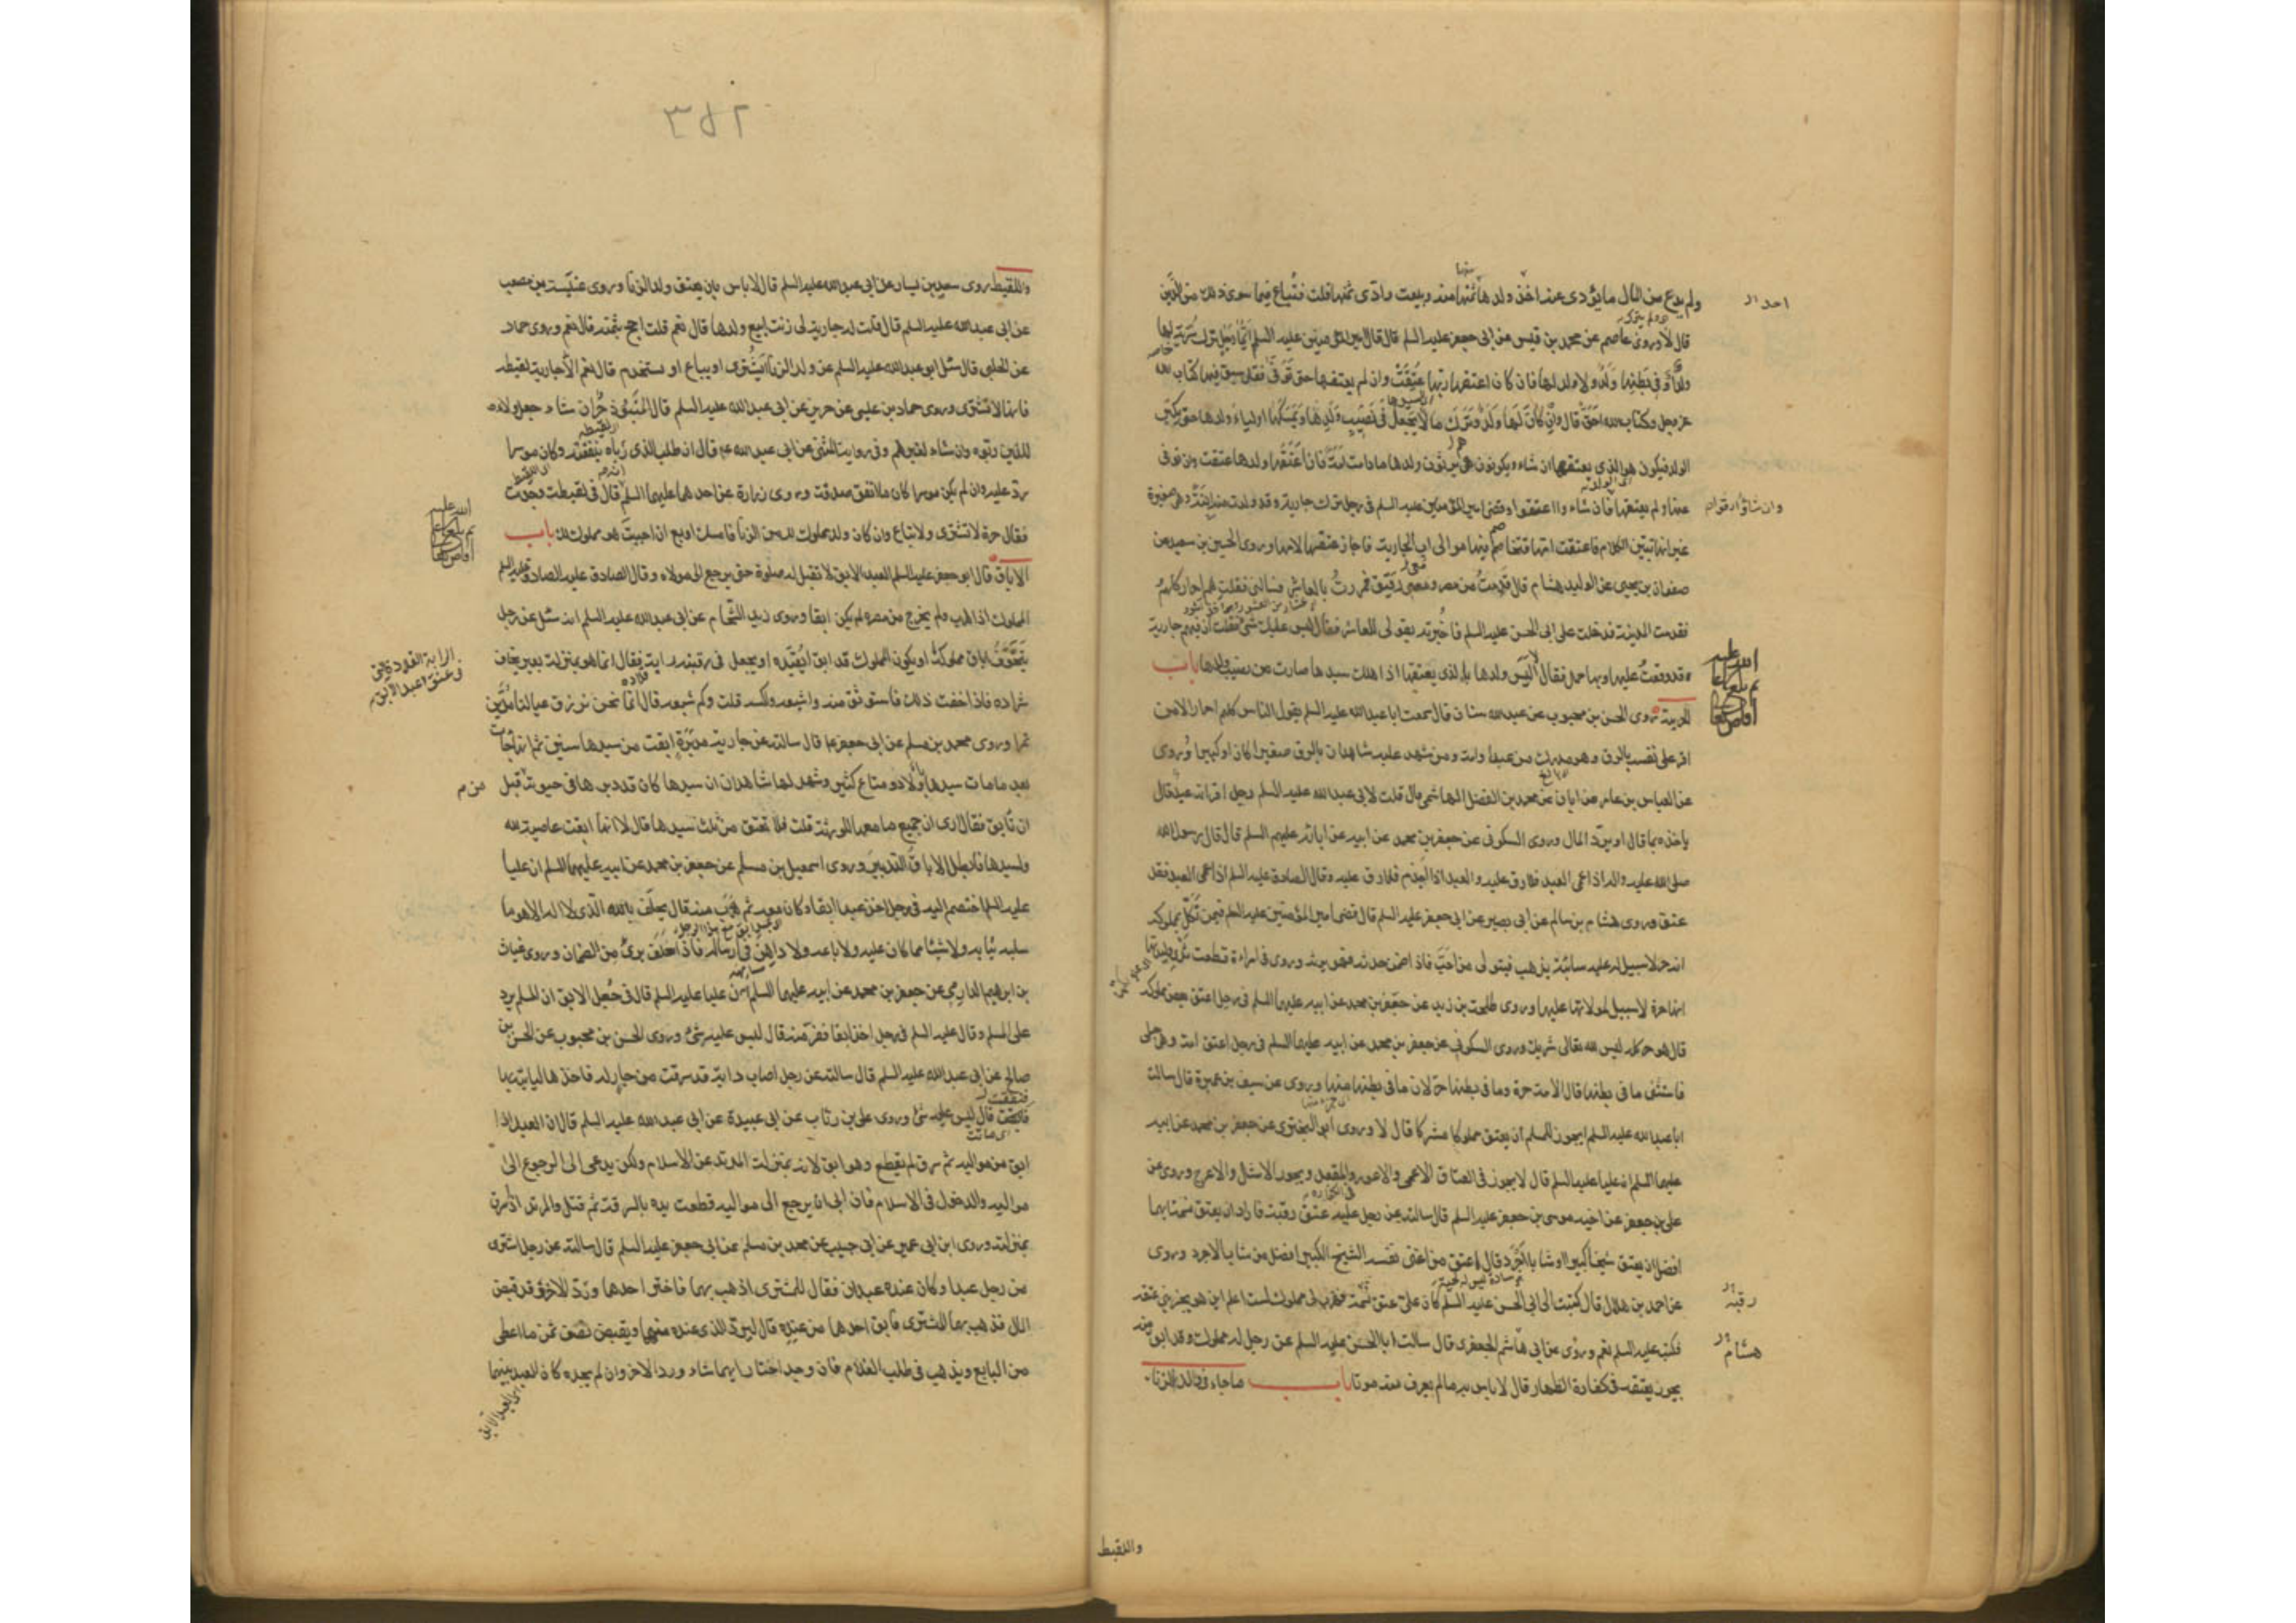 ولم يدع من المال ما يؤدى عنه اخذ ولدها منها وبيعت وادى ثمنها قلت فتباع فيما سوى ذلك من الدين
قال لا وروى عاصم عن محمد بن قيس عن ابى جعفر عليه السلم قال قال امير المؤمنين عليه السلم ايما رجل ترك سرية لها
ولد او فى بطنها ولد او لا ولد لها فان كان اعتقها ربها عتقت وان لم يعتقها حتى توفى فقد سبق فيها كتاب الله
عز وجل وكتاب الله احق قال وان كان لها ولد وترك مالا يجعل فى نصيب ولدها ويمسكها اولياء ولدها حتى يكبر
الولد فيكون هو الذى يعتقها ان شاء ويكونون هم يرثون ولدها ما دامت امة فان اعتقها ولدها عتقت وان توفى
عنها ولم يعتقها فان شاءوا اعتقوا وقضى امير المؤمنين عليه السلم فى رجل ترك جارية وقد ولدت منه ابنة وهى صغيرة
غير انها تبين الكلام فاعتقت امها فتخاصم فيها موالى اب الجارية فاجاز عتقها لامها وروى الحسين بن سعيد عن
صفوان بن يحيى عن الوليد بن هشام قال قدمت من مصر ومعى رقيق فمررت بالعاشر فسالنى فقلت هم احرار كلهم
فقدمت المدينة فدخلت على ابى الحسن عليه السلم فاخبرته بقولى للعاشر فقال ليس عليك شئ فقلت ان فيهم جارية
قد وقعت عليها وبها حمل فقال اليس ولدها بالذى يعتقها اذا هلك سيدها صارت من نصيب ولدها باب
الحرية روى الحسن بن محبوب عن عبد الله سنان قال سمعت ابا عبد الله عليه السلم يقول الناس كلهم احرار الا من
اقر على نفسه بالرق وهو مدرك من عبد او امة ومن شهد عليه شاهدان بالرق صغيرا كان او كبيرا وروى
عن العباس بن عامر عن ابان عن محمد بن الفضل الهاشمى قال قلت لابى عبد الله عليه السلم رجل اقر انه عبد قال
ياخذه بما قال او يرد المال وروى السكونى عن جعفر بن محمد عن ابيه عن ابائه عليهم السلم قال قال رسول الله
صلى الله عليه واله اذا عمى العبد فلا رق عليه والعبد اذا جذم فلا رق عليه وقال الصادق عليه السلم اذا عمى العبد فقد
عتق وروى هشام بن سالم عن ابى بصير عن ابى جعفر عليه السلم قال قضى امير المؤمنين عليه السلم فيمن نكل بمملوكه
انه حر لا سبيل له عليه سائبة يذهب فيتولى من احب فاذا ضمن حدثه فهو يرثه وروى فى امراة قطعت ثدى وليدتها
انها حرة لا سبيل لمولاتها عليها وروى طلحة بن زيد عن جعفر بن محمد عن ابيه عليهما السلم فى رجل اعتق بعض مملوكه
قال هو حر كله ليس لله تعالى شريك وروى السكونى عن جعفر بن محمد عن ابيه عليهما السلم فى رجل اعتق امة وهى حبلى
فاستثنى ما فى بطنها قال الامة حرة وما فى بطنها حر لان ما فى بطنها منها وروى عن سيف بن عميرة قال سالت
ابا عبد الله عليه السلم ايجوز للمسلم ان يعتق مملوكا مشركا قال لا وروى ابو البخترى عن جعفر بن محمد عن ابيه
عليهما السلم ان عليا عليه السلم قال لا يجوز فى العتاق الاعمى والاعور والمقعد ويجوز الاشل والاعرج وروى عن
على بن جعفر عن اخيه موسى بن جعفر عليه السلم قال سالته عن رجل عليه عتق رقبة فاراد ان يعتق نسمة ايهما
افضل ان يعتق شيخا كبيرا او شابا اجرد قال اعتق من اغنى نفسه الشيخ الكبير افضل من شاب الاجرد وروى
عن احمد بن هلال قال كتبت الى ابى الحسن عليه السلم كان على عتق نسمة فهرب لى مملوك لست اعلم اين هو يجزينى عتقه
فكتب عليه السلم نعم وروى عن ابى هاشم الجعفرى قال سالت ابا الحسن عليه السلم عن رجل له مملوك وقد ابق منه
يجوز يعتقه فى كفارة الظهار قال لا باس به ما لم يعرف منه موتا باب ما جاء فى ولد الزنا
واللقيط
احد
وان شاؤا ارقوا
رقبة
هشام
٣٨٢
واللقيط روى سعيد بن يسار عن ابى عبد الله عليه السلم قال لا باس بان يعتق ولد الزنا وروى عنبسة بن مصعب
عن ابى عبد الله عليه السلم قال قلت له جارية لى زنت ابيع ولدها قال نعم قلت احج بثمنه قال نعم وروى حماد
عن الحلبى قال سئل ابو عبد الله عليه السلم عن ولد الزنا ايشترى او يباع او يستخدم قال نعم الا جارية لقيطة
فانها لا تشترى وروى حماد بن عيسى عن حريز عن ابى عبد الله عليه السلم قال المنبوذ حر ان شاء جعل ولاءه
للذين ربوه وان شاء لغيرهم وفى رواية المثنى عن ابى عبد الله ع قال ان طلب الذى رباه بنفقته وكان موسرا
رد عليه وان لم يكن موسرا كان ما انفق صدقة وروى زرارة عن احدهما عليهما السلم انه قال فى لقيطة وجدت
فقال حرة لا تشترى ولا تباع وان كان ولد مملوك لك من الزنا فامسك او بع ان احببت هو مملوك لك باب
الاباق قال ابو جعفر عليه السلم العبد الابق لا تقبل له صلوة حتى يرجع الى مولاه وقال الصادق عليه السلم
المملوك اذا هرب ولم يخرج من مصره لم يكن ابقا وروى زيد الشحام عن ابى عبد الله عليه السلم انه سئل عن رجل
يتخوف اباق مملوكه او يكون المملوك قد ابق ايقيده او يجعل فى رقبته راية فقال انما هو بمنزلة بعير يخاف
شراده فاذا خفت ذلك فاستوثق منه واشبعه واكسه قلت وكم شبعه قال اما نحن نرزق عيالنا مدين
تمرا وروى محمد بن مسلم عن ابى جعفر ع قال سالته عن جارية مدبرة ابقت من سيدها سنين ثم انها جاءت
بعد ما مات سيدها باولاد ومتاع كثير وشهد لها شاهدان ان سيدها كان قد دبرها فى حيوته قبل
ان تابق فقال ارى ان جميع ما معها للورثة قلت فلا تعتق من ثلث سيدها قال لا انها ابقت عاصية لله
ولسيدها فابطل الاباق التدبير وروى اسمعيل بن مسلم عن جعفر بن محمد عن ابيه عليهما السلم ان عليا
عليه السلم اختصم اليه فى رجل اخذ عبدا ابقا وكان معه ثم هرب منه قال يحلف بالله الذى لا اله الا هو ما
سلبه ثيابه ولا شيئا مما كان عليه ولا باعه ولا داهن فى ارساله فاذا حلف برئ من الضمان وروى غياث
بن ابرهيم الدارمى عن جعفر بن محمد عن ابيه عليهما السلم ان عليا عليه السلم قال فى جعل الابق ان المسلم يرد
على المسلم وقال عليه السلم فى رجل اخذ ابقا ففر منه قال ليس عليه شئ وروى الحسن بن محبوب عن الحسن بن
صالح عن ابى عبد الله عليه السلم قال سالته عن رجل اصاب دابة قد سرقت من جار له فاخذها لياتيه بها
فنفقت قال ليس عليه شئ وروى على بن رئاب عن ابى عبيدة عن ابى عبد الله عليه السلم قال ان العبد اذا
ابق من مواليه ثم سرق لم يقطع وهو ابق لانه بمنزلة المرتد عن الاسلام ولكن يدعى الى الرجوع الى
مواليه والدخول فى الاسلام فان ابى ان يرجع الى مواليه قطعت يده بالسرقة ثم قتل والمرتد اذا سرق
بمنزلته وروى ابن ابى عمير عن ابى حبيب عن محمد بن مسلم عن ابى جعفر عليه السلم قال سالته عن رجل اشترى
من رجل عبدا وكان عنده عبدان فقال للمشترى اذهب بهما فاختر احدهما ورد الاخر وقد قبض
المال فذهب بهما المشترى فابق احدهما من عنده قال ليرد الذى عنده منهما ويقبض نصف ثمن ما اعطى
من البايع ويذهب فى طلب الغلام فان وجده اختار ايهما شاء ورد الاخر وان لم يجده كان العبد بينهما